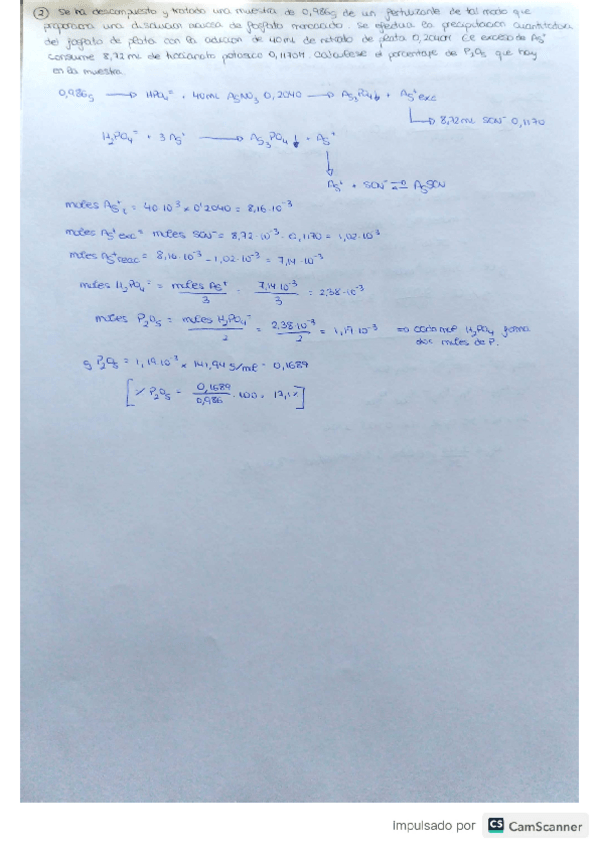 ② Se ha descompuesto y tratado una muestra de 0,986g de un fertilizante de tal modo que
proporciona una disolución acuosa de fosfato monoácido. Se efectua la precipitacion cuantitativa
del fosfato de plata con la adicion de 40mL de nitrato de plata 0,204M. El exceso de Ag⁺
consume 8,72 mL de tiocianato potasico 0,1170M. Calculese el porcentaje de P₂O₅ que hay
en la muestra.
0,986g ⟶ HPO₄⁼ + 40mL AgNO₃ 0,2040 ⟶ Ag₃PO₄↓ + Ag⁺exc
↳ 8,72mL SCN⁻ 0,1170
H₂PO₄⁻ + 3Ag⁺ ⟶ Ag₃PO₄↓ + Ag⁺
↓
Ag⁺ + SCN⁻ ⇌ AgSCN
moles Ag⁺t = 40·10⁻³ × 0'2040 = 8,16·10⁻³
moles Ag⁺exc = moles SCN⁻ = 8,72·10⁻³ · 0,1170 = 1,02·10⁻³
moles Ag⁺reac = 8,16·10⁻³ - 1,02·10⁻³ = 7,14·10⁻³
moles H₂PO₄⁻ = moles Ag⁺/3 = 7,14·10⁻³/3 = 2,38·10⁻³
moles P₂O₅ = moles H₂PO₄⁻/2 = 2,38·10⁻³/2 = 1,19·10⁻³ ⇒ cada mol H₂PO₄ forma
dos moles de P.
g P₂O₅ = 1,19·10⁻³ × 141,94 g/mol = 0,1689
[% P₂O₅ = 0,1689/0,986 · 100 = 17,1%]
Impulsado por CS CamScanner